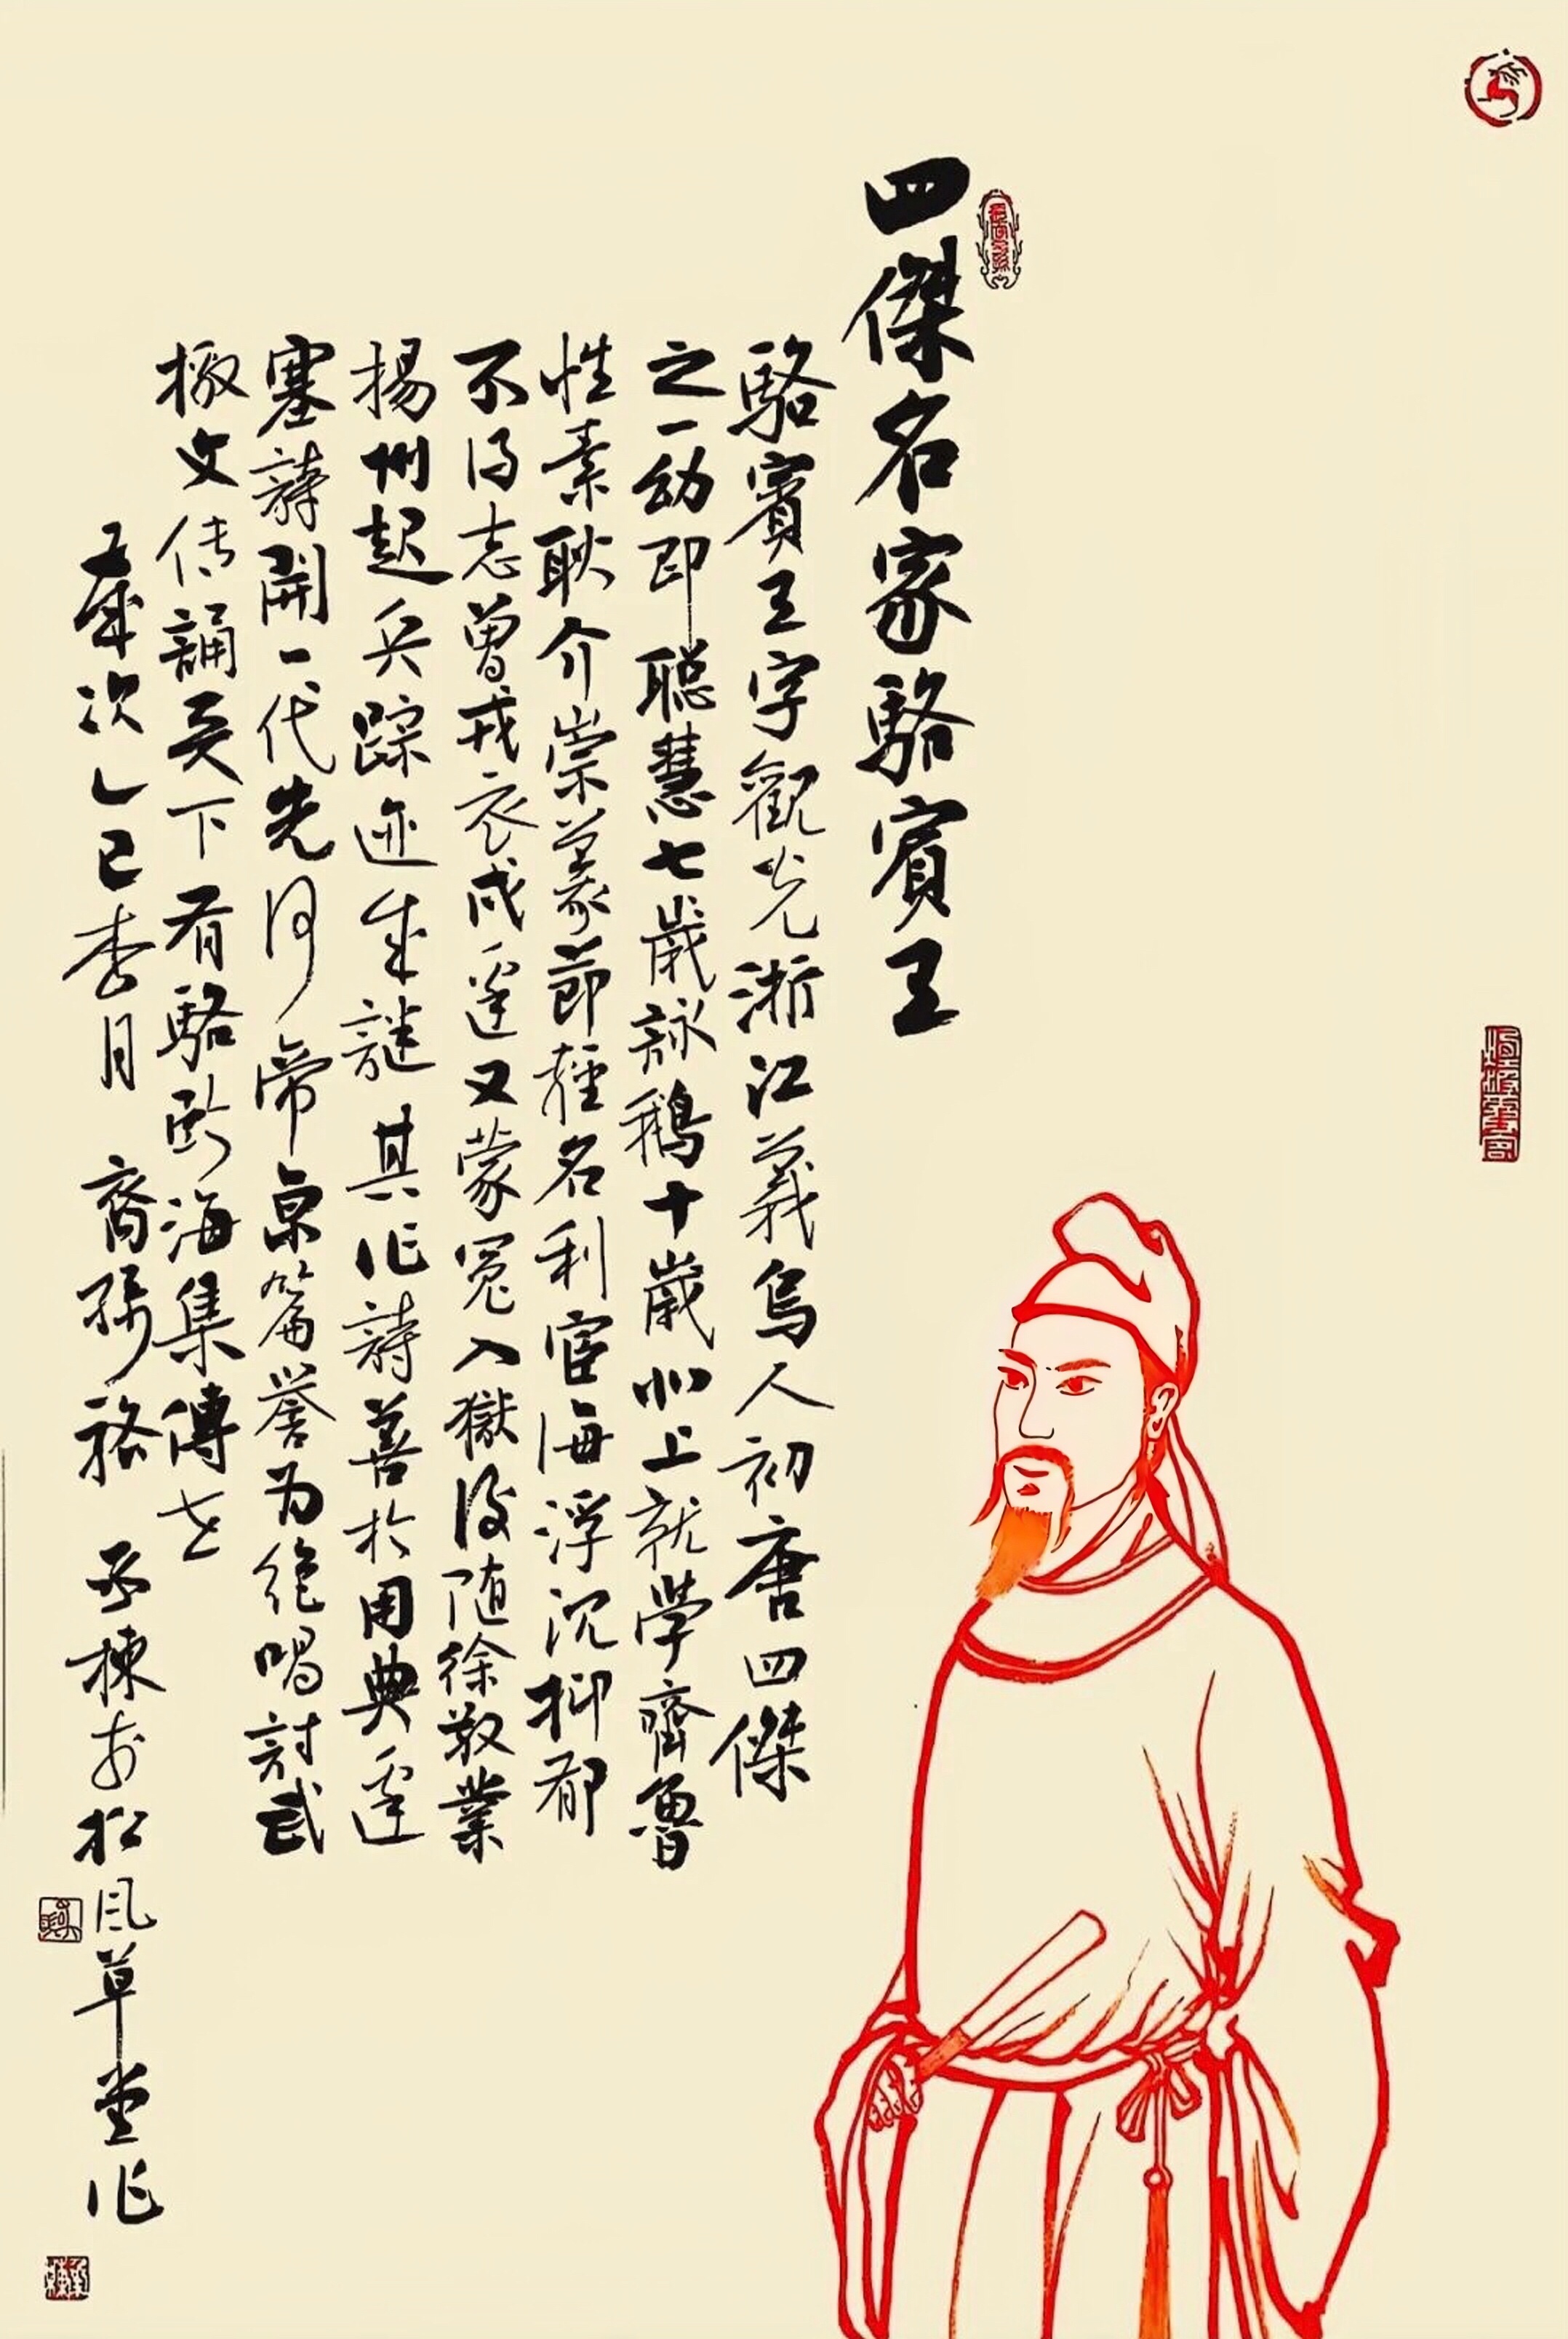 四傑名家駱賓王
駱賓王字觀光浙江義烏人初唐四傑
之一幼即聪慧七歲詠鵝十歲北上就學齊魯
性素耿介崇義節輕名利宦海浮沉抑郁
不得志曾戎衣戍邊又蒙冤入獄後随徐敬業
揚州起兵踪迹成謎其作詩善於用典邊
塞詩開一代先河帝京篇誉为绝唱討武
檄文传誦天下有駱臨海集傳世
歲次乙巳季月 裔孫駱 承棟於松风草堂作